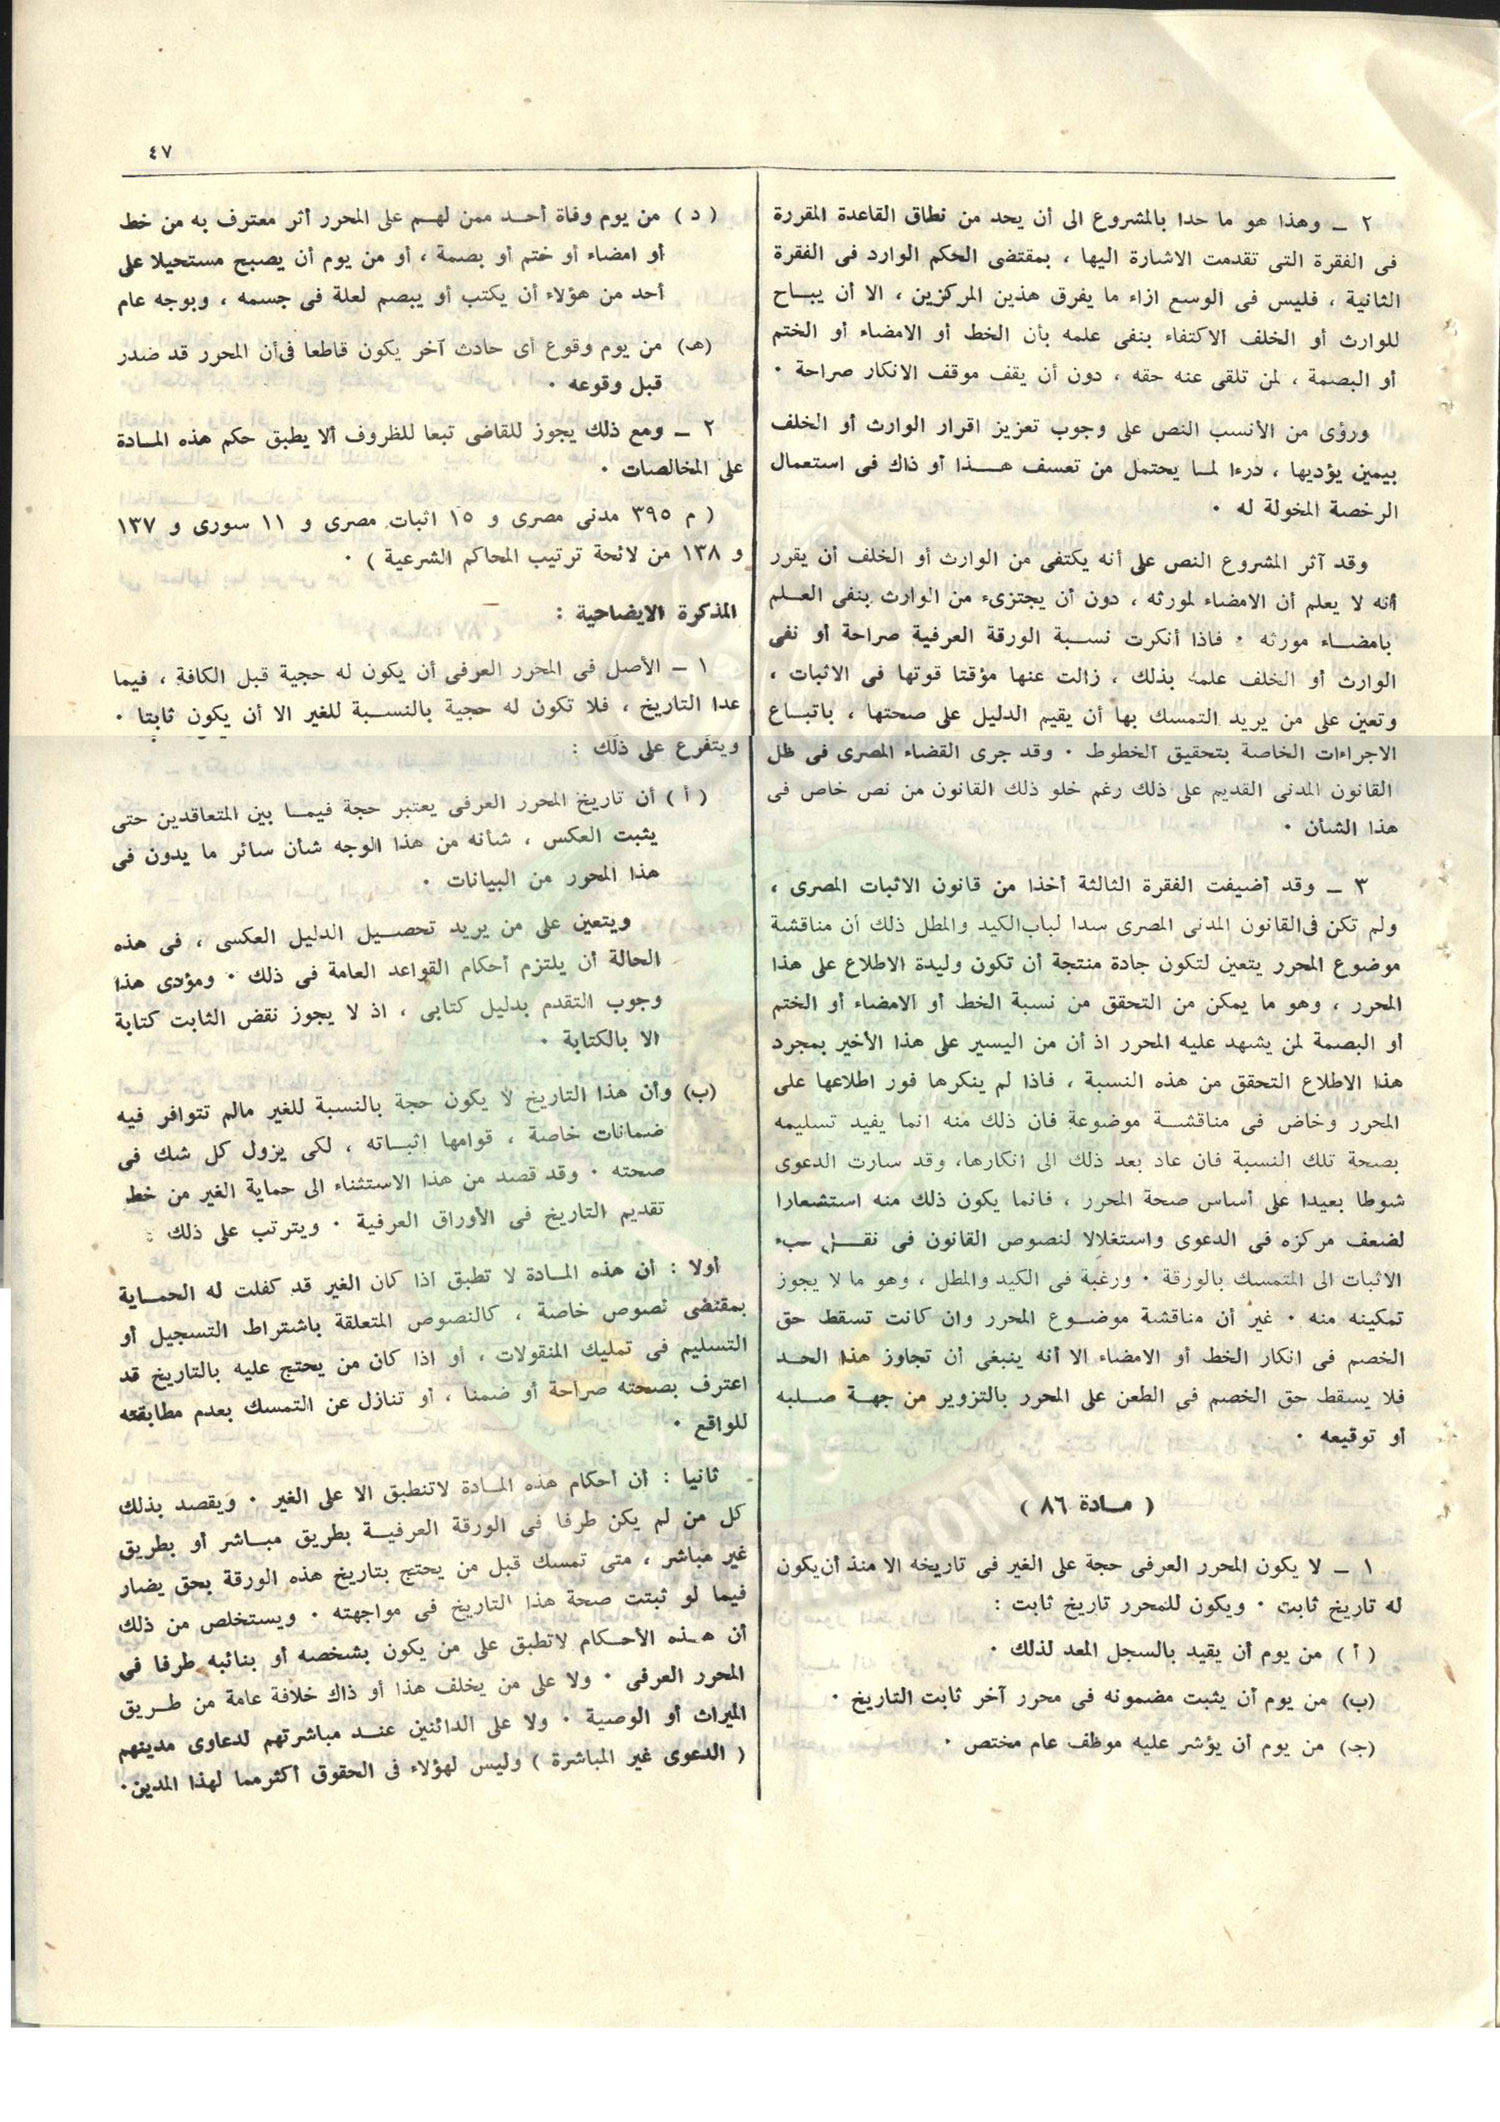 ٤٧
٢ ـ وهذا هو ما حدا بالمشروع الى أن يحد من نطاق القاعدة المقررة
فى الفقرة التى تقدمت الاشارة اليها ، بمقتضى الحكم الوارد فى الفقرة
الثانية ، فليس فى الوسع ازاء ما يفرق هذين المركزين ، الا أن يبـاح
للوارث أو الخلف الاكتفاء بنفى علمه بأن الخط أو الامضاء أو الختم
أو البصمة ، لمن تلقى عنه حقه ، دون أن يقف موقف الانكار صراحة ٠
ورؤى من الأنسب النص على وجوب تعزيز اقرار الوارث أو الخلف
بيمين يؤديها ، درءا لمـا يحتمل من تعسف هـذا أو ذاك فى استعمال
الرخصة المخولة له ٠
وقد آثر المشروع النص على أنه يكتفى من الوارث أو الخلف أن يقرر
أنه لا يعلم أن الامضاء لمورثه ، دون أن يجتزىء من الوارث بنفى العـلم
بامضـاء مورثه ٠ فاذا أنكرت نسـبة الورقة العرفية صراحة أو نفى
الوارث أو الخلف علمه بذلك ، زالت عنها مؤقتا قوتها فى الاثبات ،
وتعين على من يريد التمسك بها أن يقيم الدليل على صحتها ، باتبـاع
الاجراءات الخاصة بتحقيق الخطوط ٠ وقد جرى القضاء المصرى فى ظل
القانون المدنى القديم على ذلك رغم خلو ذلك القانون من نص خاص فى
هذا الشأن ٠
٣ ـ وقد أضيفت الفقرة الثالثة أخذا من قانون الاثبات المصرى ،
ولم تكن فى القانون المدنى المصرى سدا لباب الكيد والمطل ذلك أن مناقشة
موضوع المحرر يتعين لتكون جادة منتجة أن تكون وليدة الاطلاع على هذا
المحرر ، وهو ما يمكن من التحقق من نسبة الخط أو الامضاء أو الختم
أو البصمة لمن يشهد عليه المحرر اذ أن من اليسير على هذا الأخير بمجرد
هذا الاطلاع التحقق من هذه النسبة ، فاذا لم ينكرها فور اطلاعها على
المحرر وخاض فى مناقشـة موضوعة فان ذلك منه انما يفيد تسليمه
بصحة تلك النسبة فان عاد بعد ذلك الى انكارها، وقد سارت الدعوى
شوطا بعيدا على أساس صحة المحرر ، فانما يكون ذلك منه استشعارا
لضعف مركزه فى الدعوى واستغلالا لنصوص القانون فى نقـل عبء
الاثبات الى المتمسك بالورقة ٠ ورغبة فى الكيد والمطل ، وهو ما لا يجوز
تمكينه منه ٠ غير أن مناقشة موضـوع المحرر وان كانت تسقط حق
الخصم فى انكار الخط أو الامضاء الا أنه ينبغى أن تجاوز هذا الحـد
فلا يسقط حق الخصم فى الطعن على المحرر بالتزوير من جهـة صـلبه
أو توقيعه ٠
( مـادة ٨٦ )
١ ـ لا يكون المحرر العرفى حجة على الغير فى تاريخه الا منذ أن يكون
له تاريخ ثابت ٠ ويكون للمحرر تاريخ ثابت :
( أ ) من يوم أن يقيد بالسجل المعد لذلك ٠
(ب) من يوم أن يثبت مضمونه فى محرر آخر ثابت التاريخ ٠
(جـ) من يوم أن يؤشر عليه موظف عام مختص ٠
( د ) من يوم وفاة أحـد ممن لهـم على المحرر أثر معترف به من خط
أو امضاء أو ختم أو بصمة ، أو من يوم أن يصبح مستحيلا على
أحد من هؤلاء أن يكتب أو يبصم لعلة فى جسمه ، وبوجه عام
(هـ) من يوم وقوع أى حادث آخر يكون قاطعا فى أن المحرر قد صدر
قبل وقوعه ٠
٢ ـ ومع ذلك يجوز للقاضى تبعا للظروف ألا يطبق حكم هذه المـادة
على المخالصات ٠
( م ٣٩٥ مدنى مصرى و ١٥ اثبات مصرى و ١١ سورى و ١٣٧
و ١٣٨ من لائحة ترتيب المحاكم الشرعية ) ٠
المذكرة الايضاحية :
١ ـ الأصل فى المحرر العرفى أن يكون له حجية قبل الكافة ، فيما
عدا التاريخ ، فلا تكون له حجية بالنسـبة للغير الا أن يكون ثابتا ٠
ويتفرع على ذلك :
( أ ) أن تاريخ المحرر العرفى يعتبر حجة فيمـا بين المتعاقدين حتى
يثبت العكس ، شأنه من هذا الوجه شأن سائر ما يدون فى
هذا المحرر من البيانات ٠
ويتعين على من يريد تحصـيل الدليل العكسى ، فى هذه
الحالة أن يلتزم أحكام القواعد العامة فى ذلك ٠ ومؤدى هذا
وجوب التقدم بدليل كتابى ، اذ لا يجوز نقض الثابت كتابة
الا بالكتابة ٠
(ب) وأن هذا التاريخ لا يكون حجة بالنسبة للغير مالم تتوافر فيه
ضمانات خاصة ، قوامها اثبـاته ، لكى يزول كل شك فى
صحته ٠ وقد قصد من هذا الاستثناء الى حماية الغير من خطر
تقديم التاريخ فى الأوراق العرفية ٠ ويترتب على ذلك :
أولا : أن هذه المـادة لا تطبق اذا كان الغير قد كفلت له الحمـاية
بمقتضى نصوص خاصة ، كالنصوص المتعلقة باشتراط التسجيل أو
التسليم فى تمليك المنقولات ، أو اذا كان من يحتج عليه بالتاريخ قد
اعترف بصحته صراحة أو ضمنا ، أو تنازل عن التمسك بعدم مطابقته
للواقع ٠
ثانيا : أن أحكام هذه المـادة لاتنطبق الا على الغير ٠ ويقصد بذلك
كل من لم يكن طرفا فى الورقة العرفيـة بطريق مبـاشر أو بطريق
غير مباشر ، متى تمسك قبل من يحتج بتاريخ هذه الورقة بحق يضار
فيما لو ثبتت صحة هذا التاريخ فى مواجهته ٠ ويستخلص من ذلك
أن هـذه الأحـكام لاتطبق على من يكون بشخصه أو بنائبه طرفا فى
المحرر العرفى ٠ ولا على من يخلف هذا أو ذاك خلافة عامة من طـريق
الميراث أو الوصية ٠ ولا على الدائنين عنـد مباشرتهم لدعاوى مدينهم
( الدعوى غير المباشرة ) وليس لهؤلاء فى الحقوق أكثر مما لهذا المدين٠